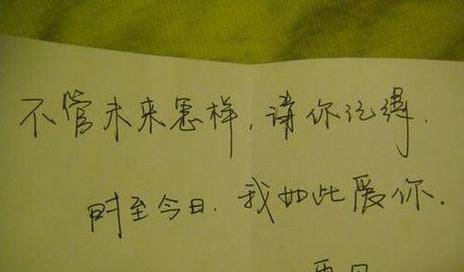 不管未来怎样,请你记得.
时至今日.我如此爱你.